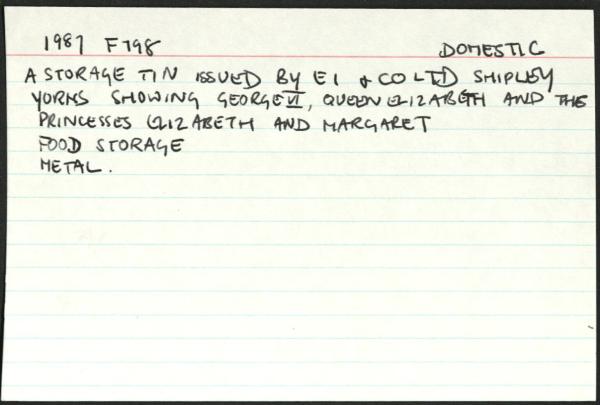 1987 F798 DOMESTIC
A STORAGE TIN ISSUED BY E I & CO LTD SHIPLEY
YORKS SHOWING GEORGE VI, QUEEN ELIZABETH AND THE
PRINCESSES ELIZABETH AND MARGARET
FOOD STORAGE
METAL.